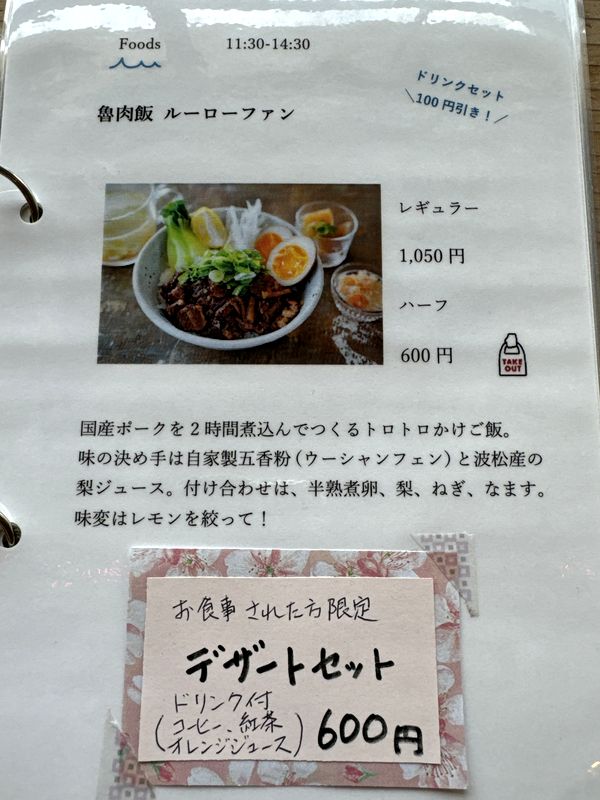 Foods 11:30-14:30
ドリンクセット
＼100円引き！／
魯肉飯 ルーローファン
レギュラー
1,050 円
ハーフ
600 円
TAKE
OUT
国産ポークを２時間煮込んでつくるトロトロかけご飯。
味の決め手は自家製五香粉(ウーシャンフェン)と波松産の
梨ジュース。付け合わせは、半熟煮卵、梨、ねぎ、なます。
味変はレモンを絞って！
お食事された方限定
デザートセット
ドリンク付
(コーヒー、紅茶
オレンジジュース)
600円